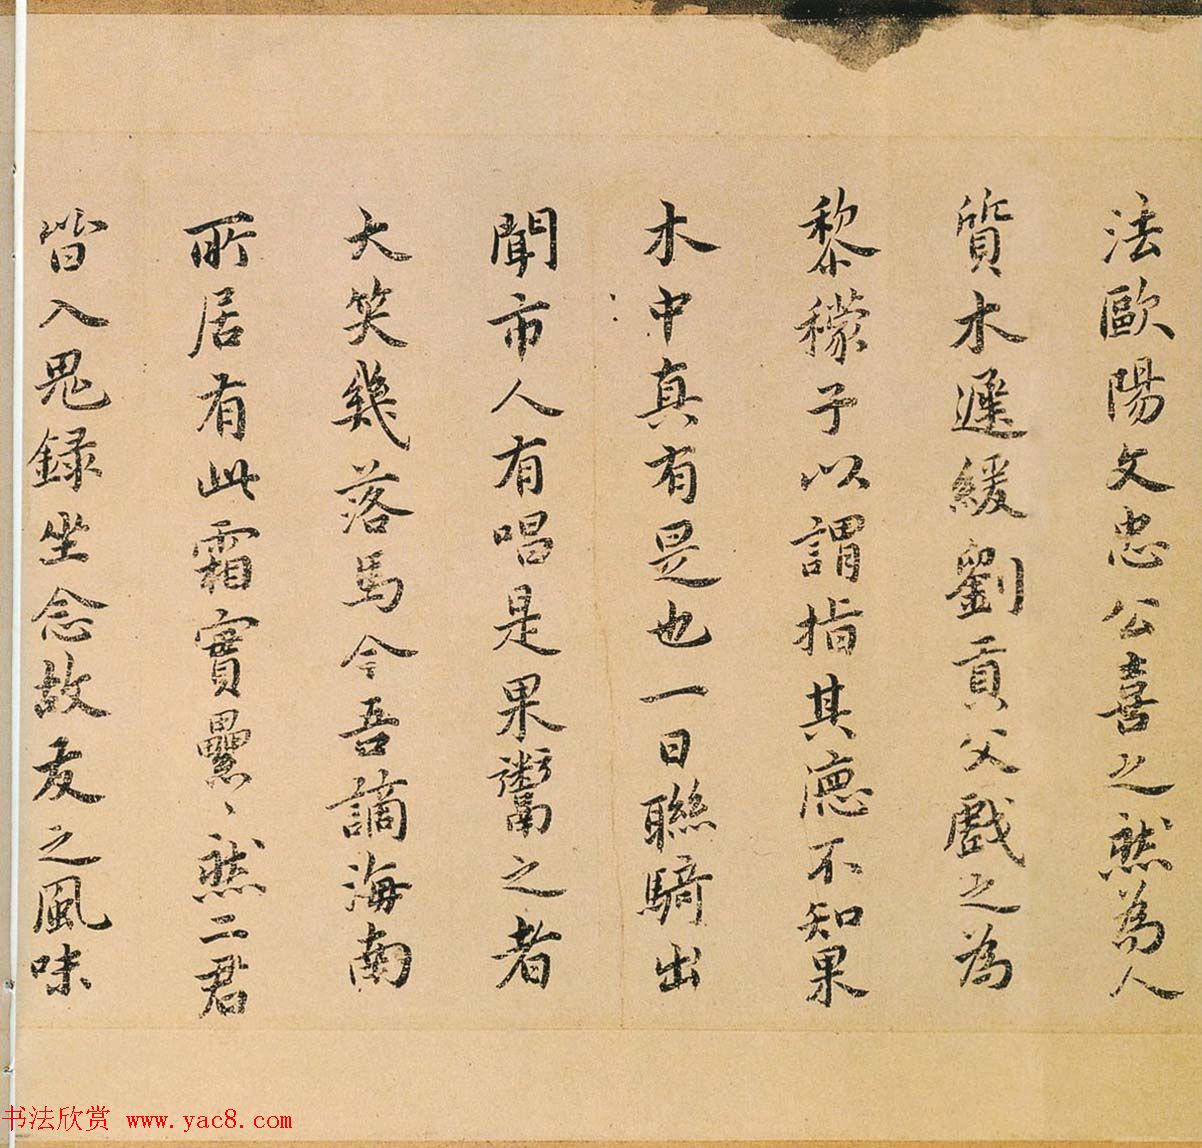 法歐陽文忠公喜之然為人
質木遲緩劉貢父戲之為
黎檬子以謂指其德不知果
木中真有是也一日聯騎出
聞市人有唱是果鬻之者
大笑幾落馬今吾謫海南
所居有此霜實纍〻然二君
皆入鬼錄坐念故友之風味
书法欣赏 www.yac8.com